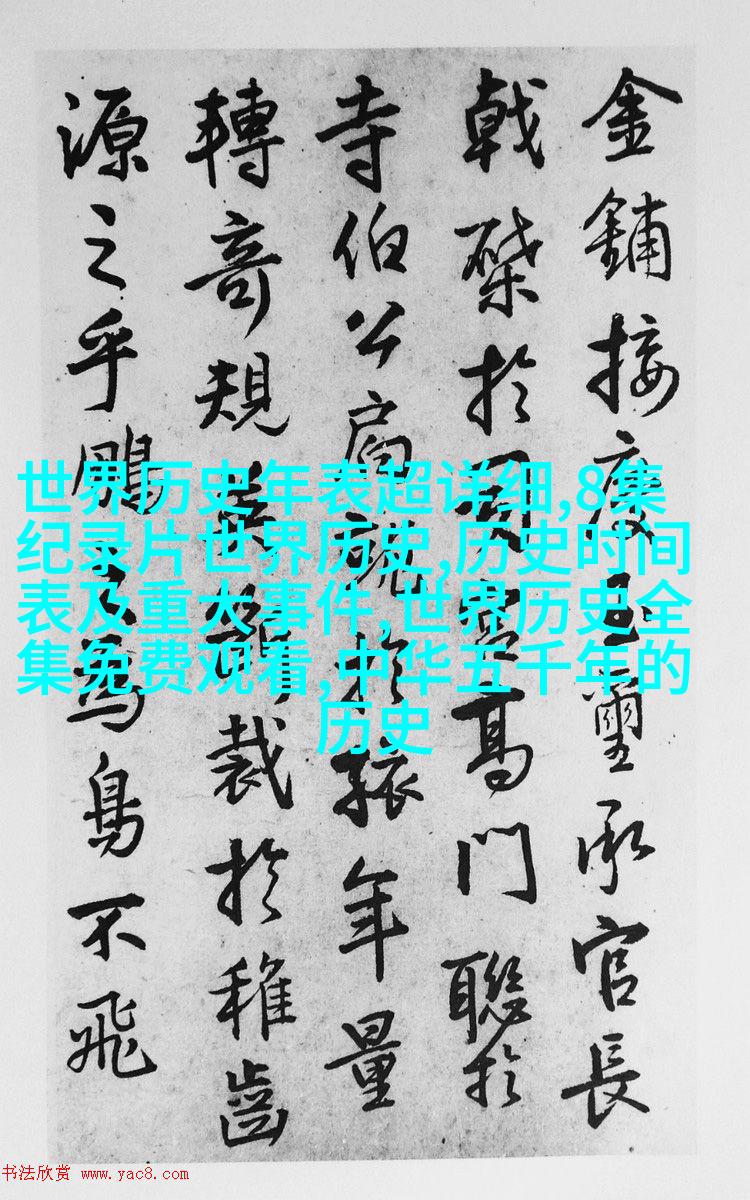 金鋪接慶璽承官長
戟於司空高門聯於
寺伯公扃於年量
轉奇規裁於稚齒
源之乎鵬不飛
世界历史年表超详细,8集
纪录片世界历史,历史时间
表及重大事件,世界历史全
集免费观看,中华五千年的
历史
书法欣赏 www.yac8.com